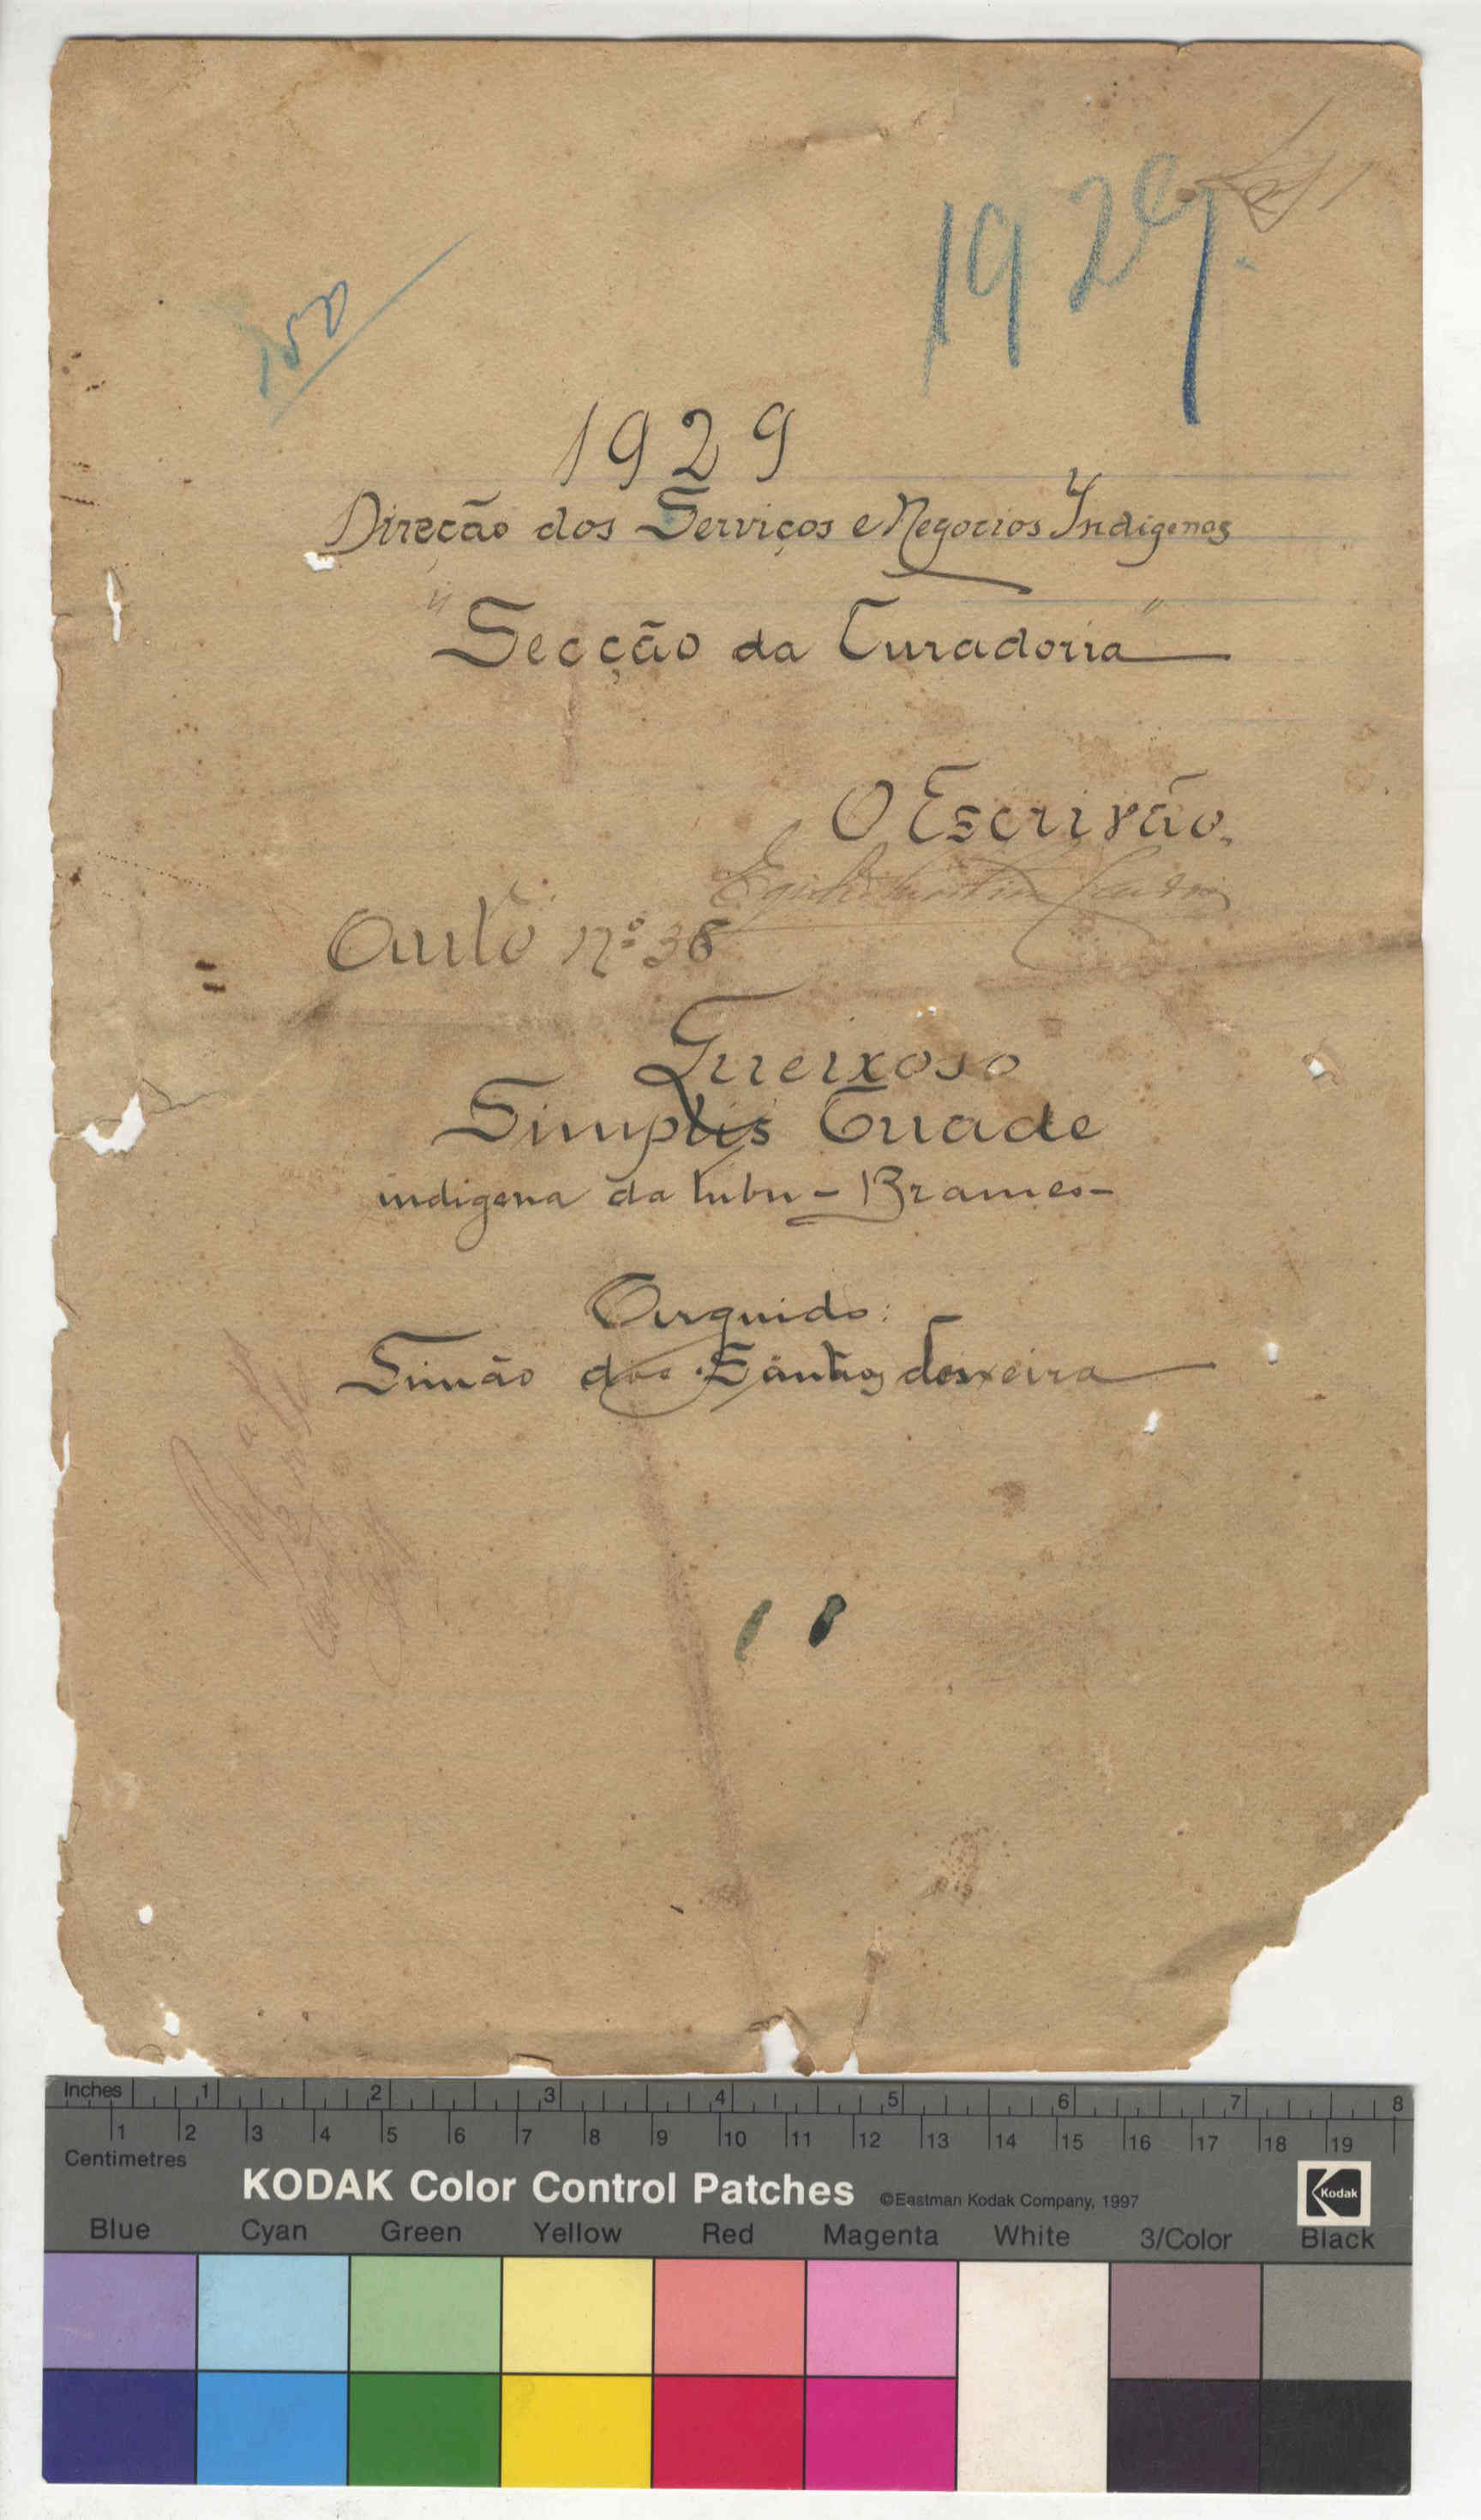 1929.
150
1929
Direcção dos Serviços e Negocios Indigenas
"Secção da Curadoria"
O Escrivão,
Auto nº 36
Queixoso
Simplis Cuade
indigena da tribu - Brames -
Arguido:
Simão dos Santos Teixeira
Inches 1 2 3 4 5 6 7 8
1 2 3 4 5 6 7 8 9 10 11 12 13 14 15 16 17 18 19
Centimetres
KODAK Color Control Patches ©Eastman Kodak Company, 1997 Kodak
Blue Cyan Green Yellow Red Magenta White 3/Color Black